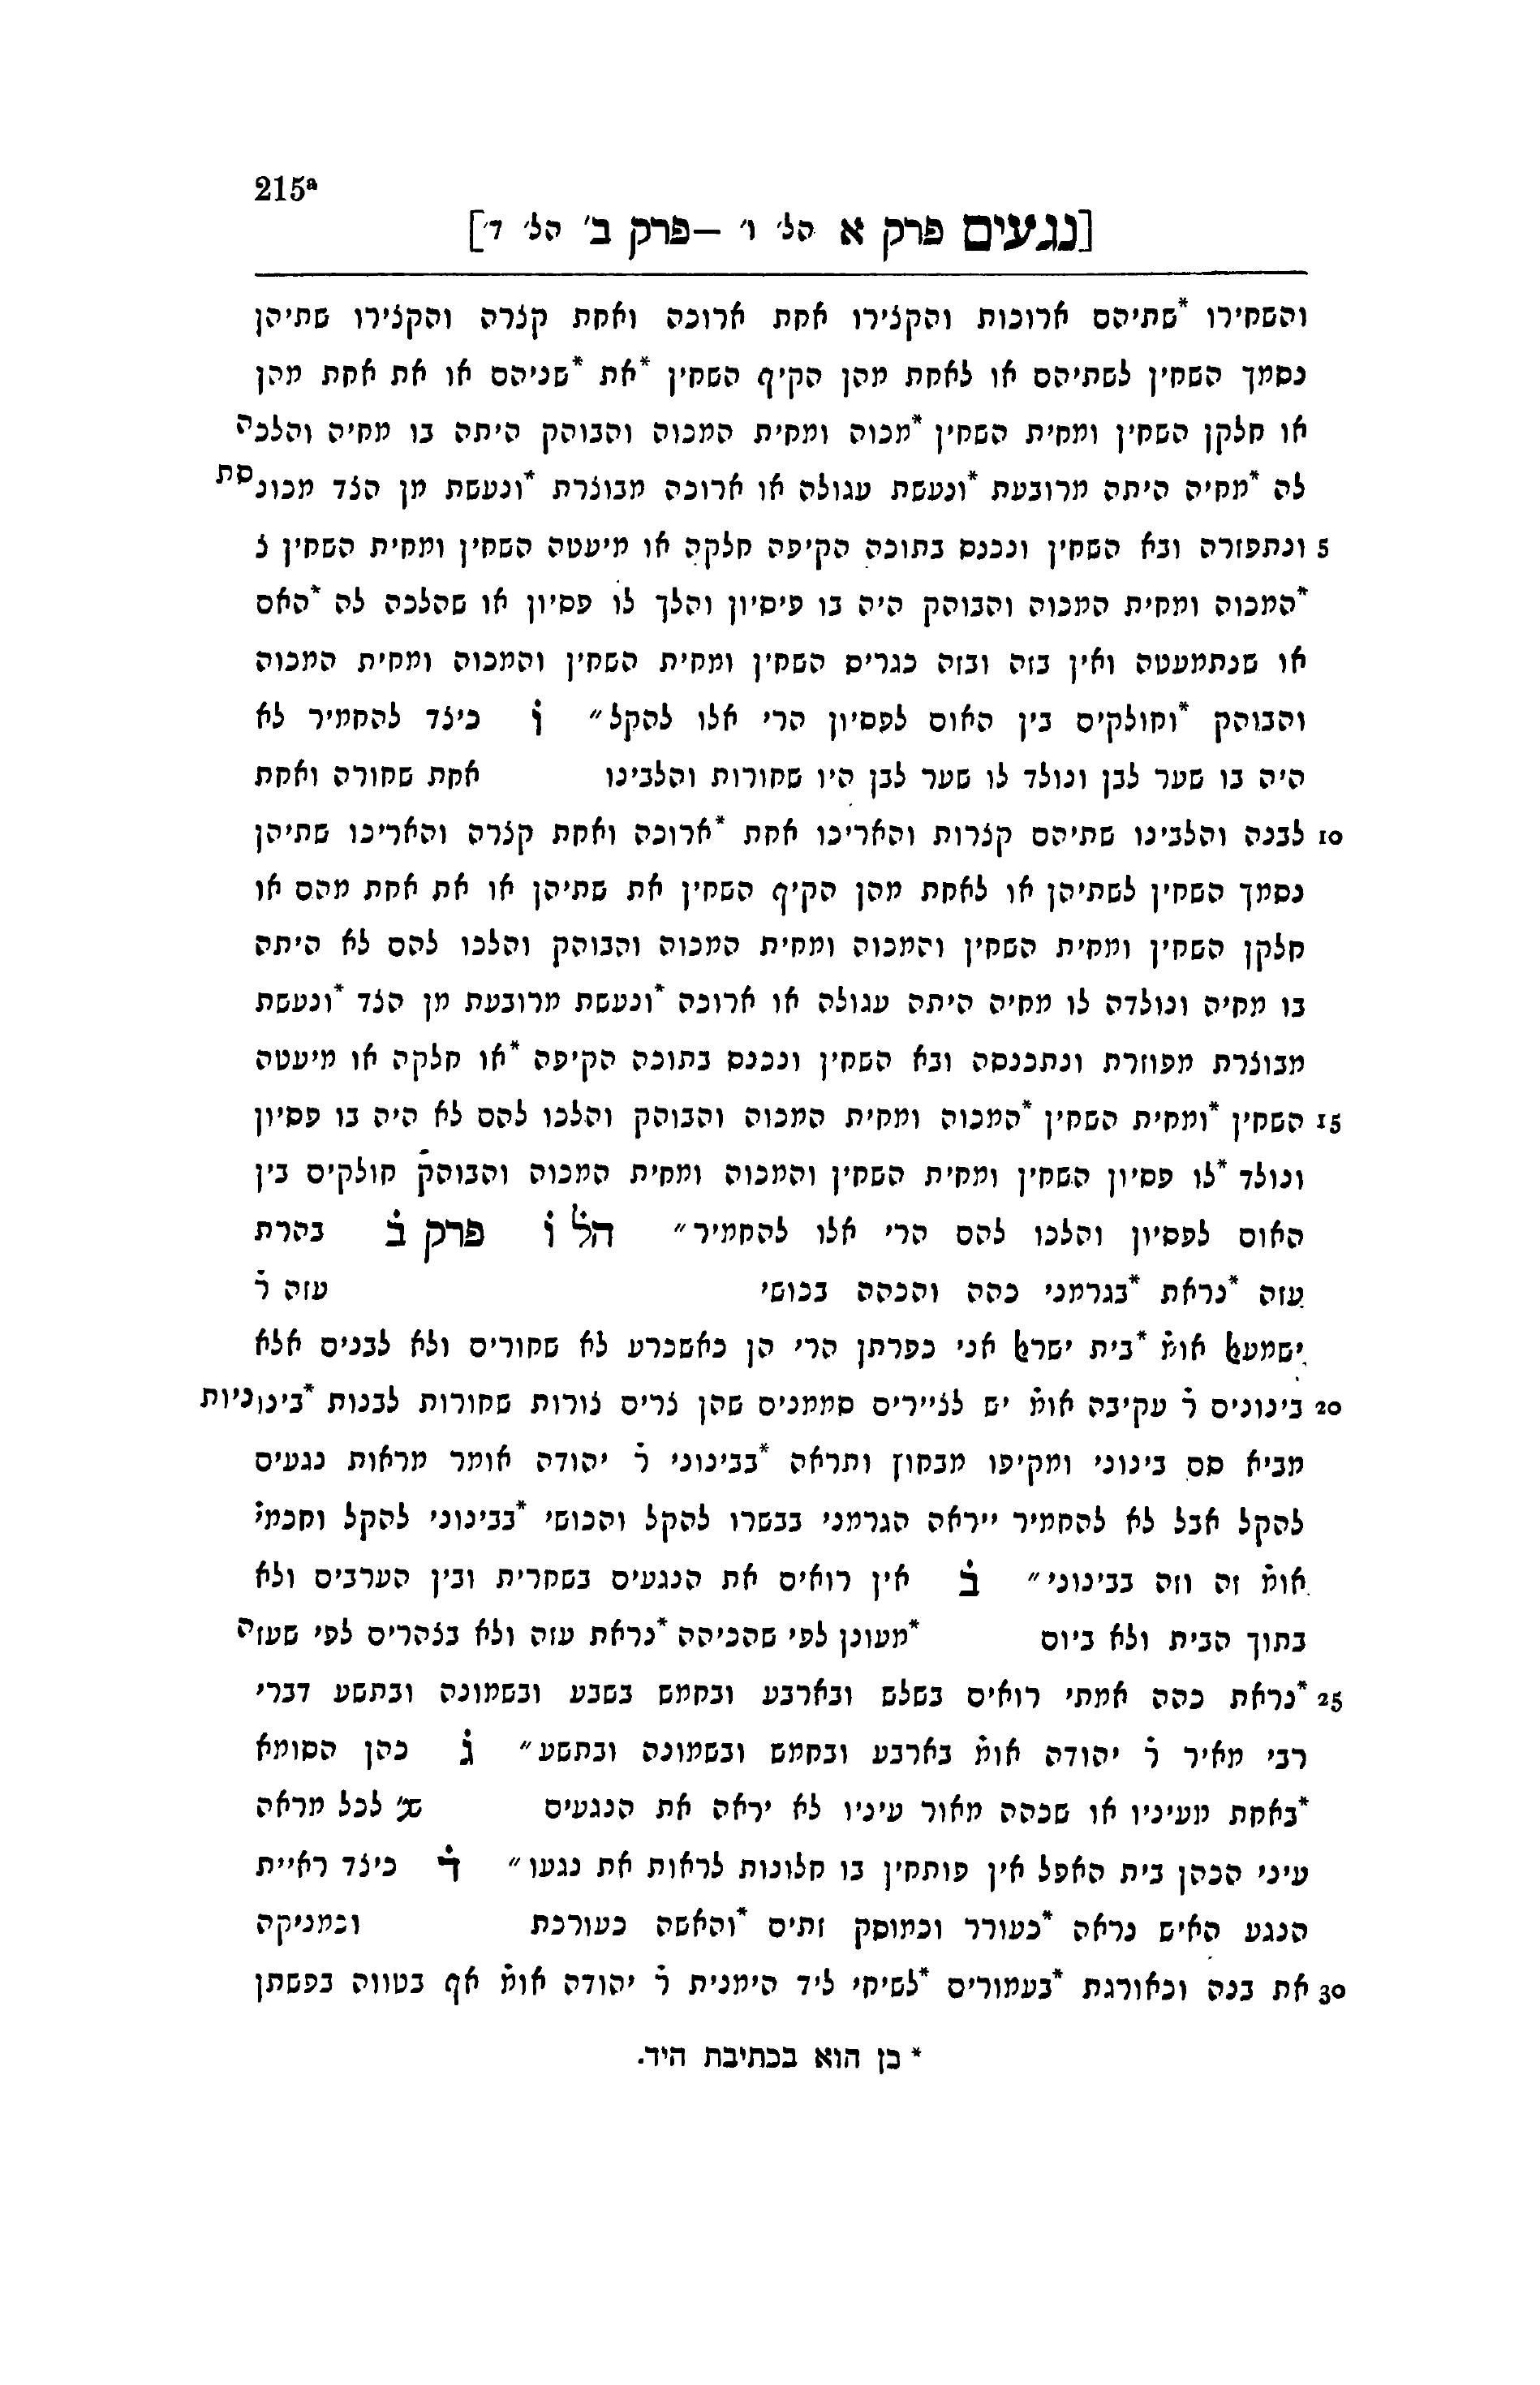 215ª
[נגעים פרק א הל׳ ו׳ –פרק ב׳ הל׳ ד׳]
והשחירו *שתיהם ארוכות והקצירו אחת ארוכה ואחת קצרה והקצירו שתיהן
נסמך השחין לשתיהם או לאחת מהן הקיף השחין *את *שניהם או את אחת מהן
או חלקן השחין ומחית השחין *מכוה ומחית המכוה והבוהק היתה בו מחיה והלכה
לה *מחיה היתה מרובעת *ונעשת עגולה או ארוכה מבוצרת *ונעשת מן הצד מכונסת
5 ונתפזרה ובא השחין ונכנס בתוכה הקיפה חלקה או מיעטה השחין ומחית השחין צ
*המכוה ומחית המכוה והבוהק היה בו פיסיון והלך לו פסיון או שהלכה לה *האם
או שנתמעטה ואין בזה ובזה כגריס השחין ומחית השחין והמכוה ומחית המכוה
והבוהק *וחולקים בין האום לפסיון הרי אלו להקל״ ו̇ כיצד להחמיר לא
היה בו שער לבן ונולד לו שער לבן היו שחורות והלבינו אחת שחורה ואחת
10 לבנה והלבינו שתיהם קצרות והאריכו אחת *ארוכה ואחת קצרה והאריכו שתיהן
נסמך השחין לשתיהן או לאחת מהן הקיף השחין את שתיהן או את אחת מהם או
חלקן השחין ומחית השחין והמכוה ומחית המכוה והבוהק והלכו להם לא היתה
בו מחיה ונולדה לו מחיה היתה עגולה או ארוכה *ונעשת מרובעת מן הצד *ונעשת
מבוצרת מפוזרת ונתכנסה ובא השחין ונכנס בתוכה הקיפה *או חלקה או מיעטה
15 השחין *ומחית השחין *המכוה ומחית המכוה והבוהק והלכו להם לא היה בו פסיון
ונולד *לו פסיון השחין ומחית השחין והמכוה ומחית המכוה והבוהק חולקים בין
האום לפסיון והלכו להם הרי אלו להחמיר״ הל̇ ו̇ פרק ב̇ בהרת
עזה *נראת *בגרמני כהה והכהה בכושי עזה ר̇
ישמעאל אומ̇ *בית ישראל אני כפרתן הרי הן כאשכרע לא שחורים ולא לבנים אלא
20 בינונים ר̇ עקיבה אומ̇ יש לציירים סממנים שהן צרים צורות שחורות לבנות *בינוניות
מביא סם בינוני ומקיפו מבחוץ ותראה *בבינוני ר̇ יהודה אומר מראות נגעים
להקל אבל לא להחמיר ייראה הגרמני בבשרו להקל והכושי *בבינוני להקל וחכמי̇
אומ̇ זה וזה בבינוני״ ב̇ אין רואים את הנגעים בשחרית ובין הערבים ולא
בתוך הבית ולא ביום *מעונן לפי שהכיהה *נראת עזה ולא בצהרים לפי שעזה
25 *נראת כהה אמתי רואים בשלש ובארבע ובחמש בשבע ובשמונה ובתשע דברי
רבי מאיר ר̇ יהודה אומ̇ בארבע ובחמש ובשמונה ובתשע״ ג̇ כהן הסומא
*באחת מעיניו או שכהה מאור עיניו לא יראה את הנגעים שנ׳ לכל מראה
עיני הכהן בית האפל אין פותחין בו חלונות לראות את נגעו״ ד̇ כיצד ראיית
הנגע האיש נראה *כעורר וכמוסק זתים *והאשה כעורכת וכמניקה
30 את בנה וכאורגת *בעמורים *לשיחי ליד הימנית ר̇ יהודה אומ̇ אף בטווה בפשתן
* כן הוא בכתיבת היד.